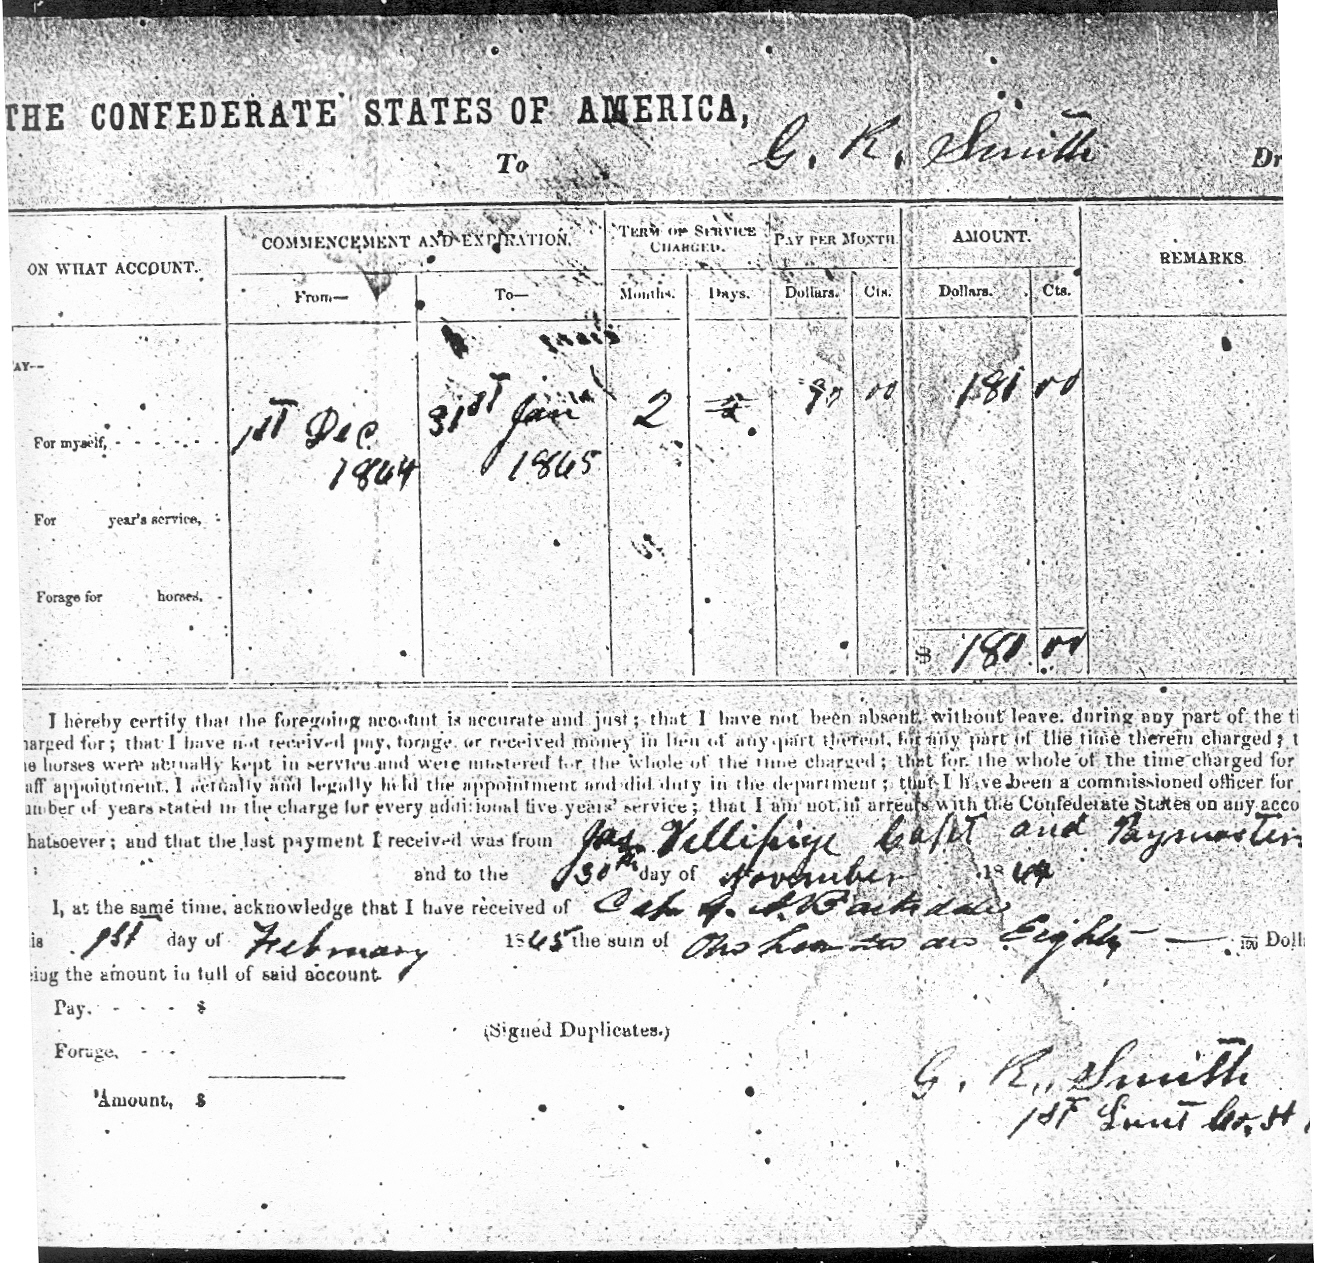 THE CONFEDERATE STATES OF AMERICA,
To G. R. Smith Dr
ON WHAT ACCOUNT. COMMENCEMENT AND EXPIRATION. TERM OF SERVICE CHARGED. PAY PER MONTH. AMOUNT. REMARKS.
From— To— Months. Days. Dollars. Cts. Dollars. Cts.
AY--
For myself, - - - - - - 1st Dec 31st Jan 2 90 00 180 00
1864 1865
For year's service, -
Forage for horses, -
$ 180 00
I hereby certify that the foregoing account is accurate and just; that I have not been absent without leave, during any part of the ti
harged for; that I have not received pay, forage, or received money in lieu of any part thereof, for any part of the time therein charged; t
e horses were actually kept in service and were mustered for the whole of the time charged; that for the whole of the time charged for
aff appointment, I actually and legally held the appointment and did duty in the department; that I have been a commissioned officer for
umber of years stated in the charge for every additional five years' service; that I am not in arrears with the Confederate States on any acco
hatsoever; and that the last payment I received was from Jas. Villipige Capt and Paymaster
and to the 30th day of November 1864
I, at the same time, acknowledge that I have received of Capt
is 1st day of February 1865 the sum of One Eighty — 100 Doll
eing the amount in full of said account.
Pay, - - - - $
(Signed Duplicates.)
Forage, - -
G. R. Smith
Amount, $
1st Lieut Co. H